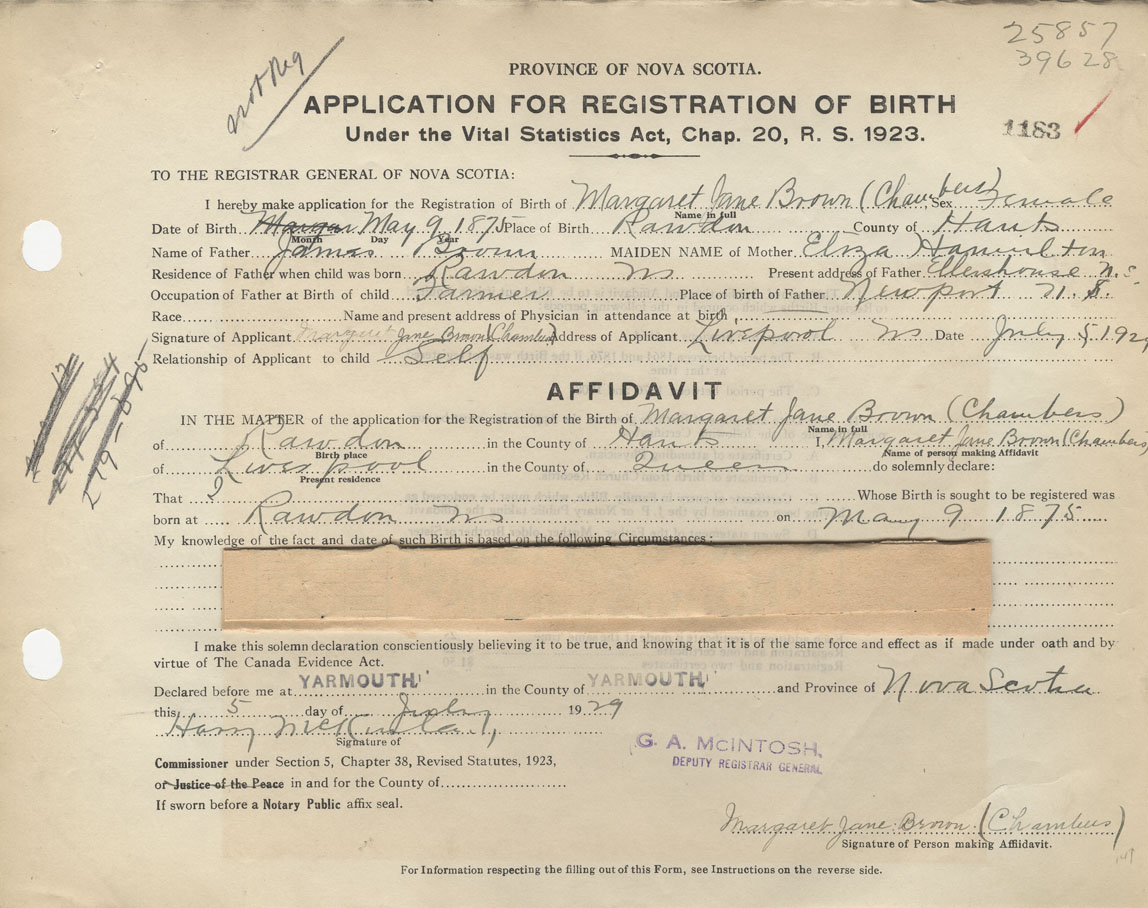 25857
39628
not Reg
PROVINCE OF NOVA SCOTIA.
APPLICATION FOR REGISTRATION OF BIRTH
Under the Vital Statistics Act, Chap. 20, R. S. 1923.
1183
TO THE REGISTRAR GENERAL OF NOVA SCOTIA:
I hereby make application for the Registration of Birth of Margaret Jane Brown (Chambers) Sex Female
Name in full
Date of Birth May 9 1875 Place of Birth Rawdon County of Hants
Month Day Year
Name of Father James Brown MAIDEN NAME of Mother Eliza Hamilton
Residence of Father when child was born Rawdon NS Present address of Father Ellershouse N.S
Occupation of Father at Birth of child Farmer Place of birth of Father Newport N.S.
Race Name and present address of Physician in attendance at birth
Signature of Applicant Margaret Jane Brown (Chambers) Address of Applicant Liverpool NS Date July 5 192
Relationship of Applicant to child Self
AFFIDAVIT
IN THE MATTER of the application for the Registration of the Birth of Margaret Jane Brown (Chambers)
Name in full
of Rawdon in the County of Hants I, Margaret Jane Brown (Chambers
Birth place Name of person making Affidavit
of Liverpool in the County of Queen do solemnly declare:
Present residence
That I Whose Birth is sought to be registered was
born at Rawdon NS on May 9 1875
My knowledge of the fact and date of such Birth is based on the following Circumstances:
I make this solemn declaration conscientiously believing it to be true, and knowing that it is of the same force and effect as if made under oath and by
virtue of The Canada Evidence Act.
Declared before me at YARMOUTH in the County of YARMOUTH and Province of Nova Scotia
this 5 day of July 1929
Harry
Signature of
Commissioner under Section 5, Chapter 38, Revised Statutes, 1923,
or Justice of the Peace in and for the County of
If sworn before a Notary Public affix seal.
G. A. McINTOSH,
DEPUTY REGISTRAR GENERAL
Margaret Jane Brown (Chambers)
Signature of Person making Affidavit.
For Information respecting the filling out of this Form, see Instructions on the reverse side.